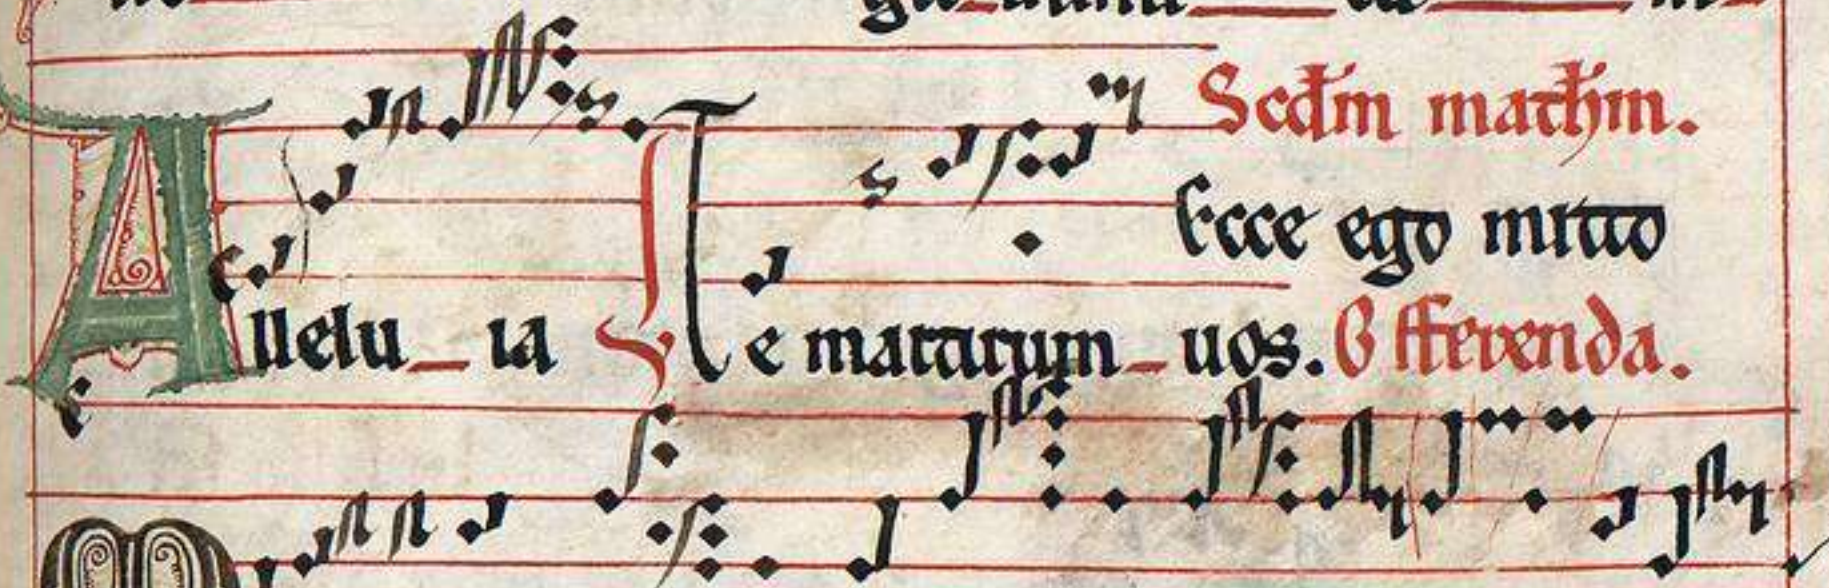 Scdm mathm.
Ecce ego mitto
Allelu_ia Te martirum_uos. Offerenda.